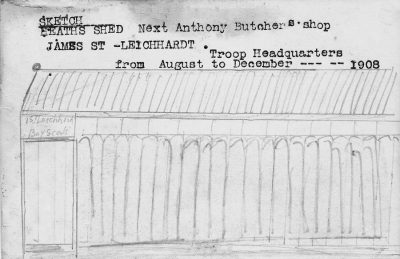 SKETCH
DEATHS SHED Next Anthony Butchers shop
JAMES ST -LEICHHARDT .
Troop Headquarters
from August to December --- -- 1908
1st Leichhardt
Boy Scouts